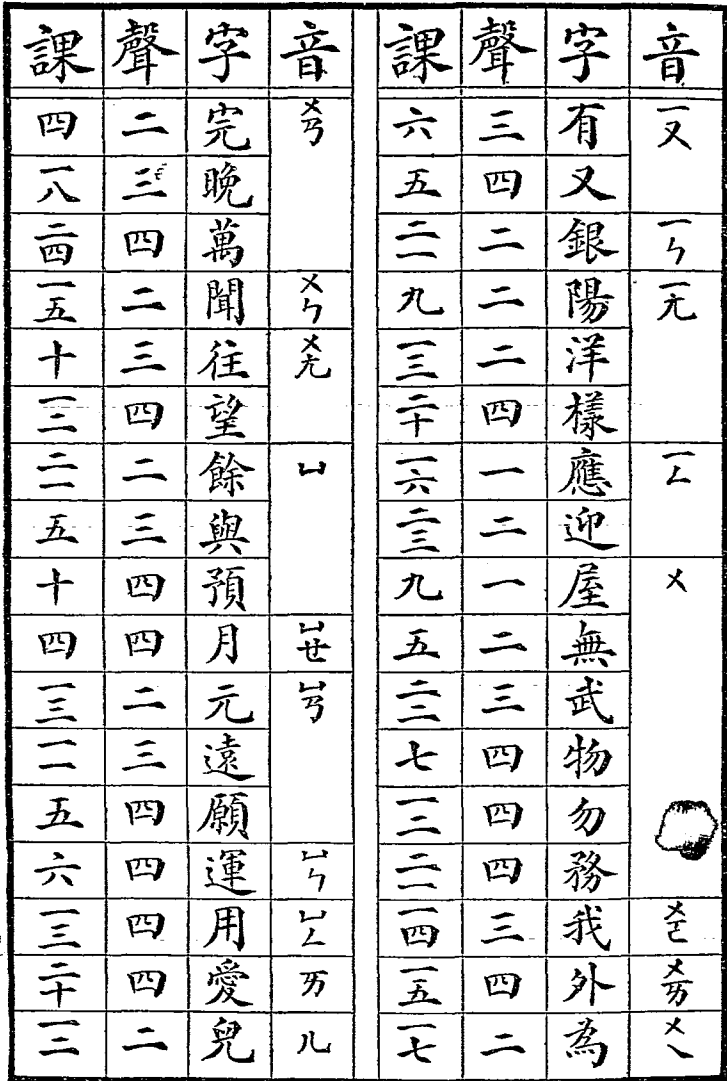 音 字 聲 課
ㄧㄡ 有 三 六
又 四 五
ㄧㄣ 銀 二 二一
ㄧㄤ 陽 二 九
洋 二 一三
樣 四 二十
ㄧㄥ 應 一 一六
迎 二 二三
ㄨ 屋 一 九
無 二 五
武 三 二二
物 四 七
勿 四 一二
務 四 二一
ㄨㄛ 我 三 一四
ㄨㄞ 外 四 一五
ㄨㄟ 為 二 一七
音 字 聲 課
ㄨㄢ 完 二 四
晚 三 一八
萬 四 二四
ㄨㄣ 聞 二 一五
ㄨㄤ 往 三 十
望 四 一二
ㄩ 餘 二 二一
與 三 五
預 四 十
ㄩㄝ 月 四 四
ㄩㄢ 元 二 一三
遠 三 一一
願 四 五
ㄩㄣ 運 四 六
ㄩㄥ 用 四 一三
ㄞ 愛 四 二十
ㄦ 兒 二 一二